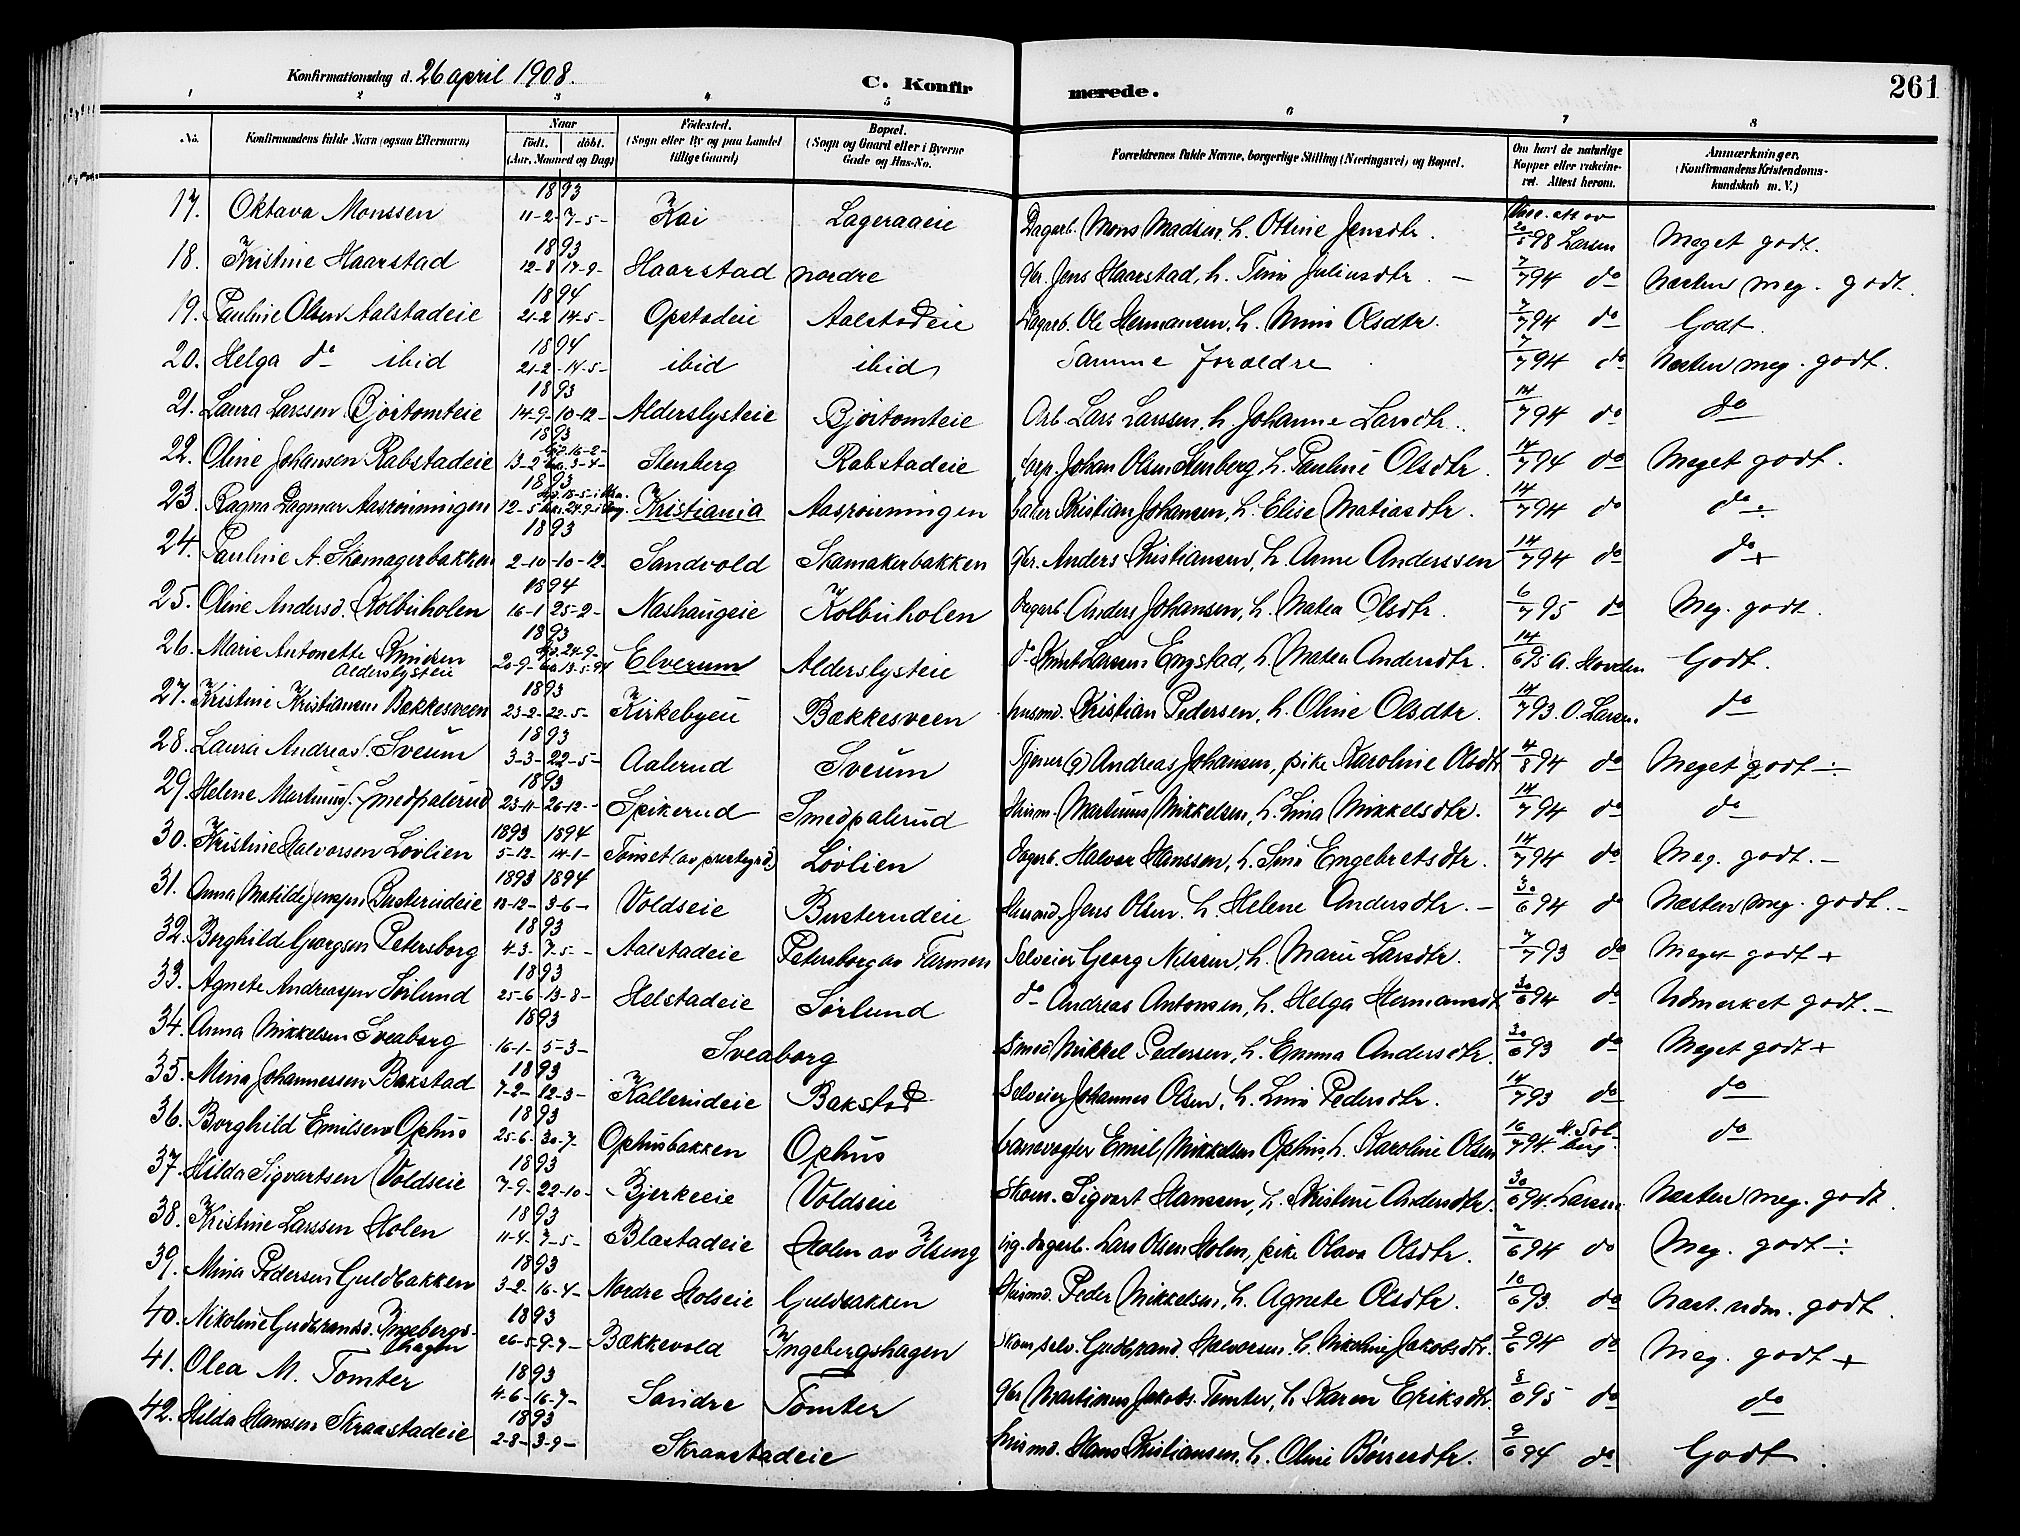 Konfirmationsdag d. 26 april 1908.
C. Konfirmerede.
261
1 2 3 4 5 6 7 8
No. Konfirmandens fulde Navn (ogsaa Efternavn) Naar Født. døbt. (Aar, Maaned og Dag) Fødested. (Sogn eller By og paa Landet tillige Gaard) Bopæl. (Sogn og Gaard eller i Byerne Gade og Hus-No. Forældrenes fulde Navne, borgerlige Stilling (Næringsvei) og Bopæl. Om havt de naturlige Kopper eller vakcineret. Attest herom. Anmærkninger. (Konfirmandens Kristendomskundskab m. V.)
17. Oktava Monssen 1893 11-2- 7-5- Kai Lageraaeie Dagarb. Mons Madsen, h. Ottine Jensdtr. 20/5 98 Larsen Meget godt.
18. Kristine Haarstad 1893 12-8 17-9- Haarstad nordre gbr. Jens Haarstad, h. Tina Juliusdtr. - 7/7 94 do Næsten meg. godt.
19. Pauline Olsen Aalstadeie 1894 21-2 14-5- Opstadeie Aalstadeie Dagarb. Ole Hermansen, h. Mina Olsdtr. 7/7 94 do Godt.
20. Helga do ibid 1894 21-2- 14-5- ibid ibid Samme forældre 7/7 94 do Næsten meg. godt.
21. Laura Larssen Bjørtomteie 1893 14-9- 10-12- Alderslysteie Bjørtomteie Arb. Lars Larssen, h. Johanne Larsdtr. 14/7 94 do do
22. Oline Johansen Rabstadeie 1893 13-2- 16-2- 3-4- Stenberg Rabstadeie Johan Olsen Stenberg, h. Pauline Olsdtr. 14/7 94 do Meget godt.
23. Ragna Dagmar Aasrønningen 1893 12-5 18-5- 24-9- Kristiania Aasrønningen Kristian Johansen, h. Elise Matiasdtr. 14/7 94 do do ÷
24. Pauline A. Skomagerbakken 1893 2-10- 10-12- Sandvold Skamakerbakken gbr. Anders Kristiansen, h. Anne Anderssen 14/7 94 do do +
25. Oline Andersd. Kolbuholen 1894 16-1 25-2- Nashaugeie Kolbuholen Dagarb. Anders Johansen, h. Matea Olsdtr. 6/7 95 do Meg. godt.
26. Marie Antonette Knudsen Alderslysteie 1893 20-9- 24-9- 13-5-94 Elverum Alderslysteie do Knut Larsen Engstad, h. Matea Andersdtr. 14/6 95 A. Hovden Godt.
27. Kristine Kristiansen Bækkesveen 1893 23-2- 22-5- Kirkebyeie Bækkesveen husmd. Kristian Pedersen, h. Oline Olsdtr. 14/7 93. O. Larsen do
28. Laura Andreas. Sveum 1893 3-3- 22-5- Aalerud Sveum Tjener (g) Andreas Johansen, pike Karoline Olsdtr 4/8 94 do Meget godt ÷
29. Helene Martinius. Smedpalerud 1893 23-11- 26-12- Spikerud Smedpalerud Husm. Martinius Mikkelsen, h. Lina Mikkelsdtr. 14/7 94 do do
30. Kristine Halvorsen Løvlien 1893 5-12- 1894 14-1- Tomset (av prestegrd.) Løvlien Dagarb. Halvor Hanssen, h. Sina Engebretsdtr. 14/7 94 do Meg. godt. -
31. Anna Matilde Jensen Busterudeie 1893 18-12- 1894 3-6- Voldseie Busterudeie Husmd. Jens Olsen. h. Helene Andersdtr. - 30/6 94 do Næsten meg. godt. -
32. Borghild Georgsen Petersborg 1893 4-3- 7-5- Aalstadeie Petersborg av Farmen Selveier Georg Nilssen, h. Marie Larsdtr. 7/7 93 do Meget godt +
33. Agnete Andreassen Sørlund 1893 25-6- 13-8- Helstadeie Sørlund do Andreas Antonsen, h. Helga Hermansdtr 30/6 94 do Udmerket godt. -
34. Anna Mikkelsen Sveaborg 1893 16-1- 5-3- Sveaborg Smed Mikkel Pedersen, h. Emma Andersdtr. 30/6 93 do Meget godt +
35. Mina Johannessen Bakstad 1893 7-2- 12-3- Kallerudeie Bakstad Selveier Johannes Olsen, h. Lina Pedersdtr. 14/7 93 do do
36. Borghild Emilsen Ophus 1893 25-6- 30-7- Ophusbakken Ophus banevogter Emil Mikkelsen Ophus, h. Karoline Olsen 16/7 94. Solberg. do
37. Hilda Sigvartsen Voldseie 1893 7-9- 22-10- Bjerkeeie Voldseie Skom. Sigvart Hanssen, h. Kristine Andersdtr. 30/6 94. Larsen Næsten meg. godt.
38. Kristine Larssen Holen 1893 11-4- 7-5- Blæstadeie Holen av Ilseng ug. dagarb. Lars Olsen Holen, pike Olava Olsdtr. 2/6 94 do Meg. godt ÷
39. Mina Pedersen Guldbakken 1893 3-2- 16-4- Nordre Holseie Guldbakken Husmd. Peder Mikkelsen, h. Agnete Olsdtr. 10/6 93. do Næst. udm. godt.
40. Nikoline Gudbrandsd. Ingebergshagen 1893 26-5- 9-7- Bækkevold Ingebergshagen Skom. selv. Gudbrand Halvorsen, h. Nikoline Jakobsdtr. 9/6 94 do Meg. godt +
41. Olea M. Tomter 1893 4-6- 16-7- Søndre Tomter gbr Martinius Jakobs. Tomter, h. Karen Eriksdtr. 8/6 95 do do
42. Hilda Hanssen Skraastadeie 1893 2-8- 3-9- Skraastadeie husmd. Hans Kristiansen, h. Oline Børresdtr. 9/6 94 do Godt.